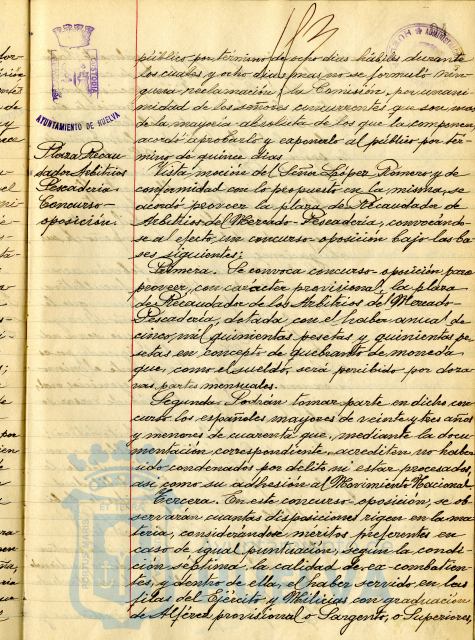 183
AYUNTAMIENTO DE HUELVA
público por término de ocho días hábiles durante
los cuales y ocho días mas, no se formuló nin-
guna reclamación, la Comisión, por unani-
midad de los señores concurrentes que son mas
de la mayoría absoluta de los que la componen
acordó aprobarlo y exponerlo al público por tér-
mino de quince días
Plaza Recau-
dador Arbitrios
Pescadería.
Concurso-
oposición.
Vista moción del Señor López Romero y de
conformidad con lo propuesto en la misma, se
acordó proveer la plaza de Recaudador de
Arbitrios del Mercado-Pescadería, convocándo-
se al efecto, un concurso-oposición bajo las ba-
ses siguientes:
Primera. Se convoca concurso-oposición para
proveer, con carácter provisional, la plaza
de Recaudador de los Arbitrios del Mercado
Pescadería, dotada con el haber anual de
cinco mil quinientas pesetas y quinientas pe-
setas en concepto de quebranto de moneda
que, como el sueldo, será percibido por doza-
vas partes mensuales.
Segunda. Podrán tomar parte en dicho con-
curso los españoles mayores de veinte y tres años
y menores de cuarenta que, mediante la docu-
mentación correspondiente, acrediten no haber
sido condenados por delito ni estar procesados,
así como su adhesión al Movimiento Nacional.
Tercera. En este concurso oposición, se ob-
servarán cuantas disposiciones rigen en la ma-
teria, considerándose méritos preferentes en
caso de igual puntuación, según la condi-
ción séptima, la calidad de ex-combatien-
tes, y dentro de ella, el haber servido en las
filas del Ejército y Milicias con graduación
de Alférez provisional o Sargento, o Superiores